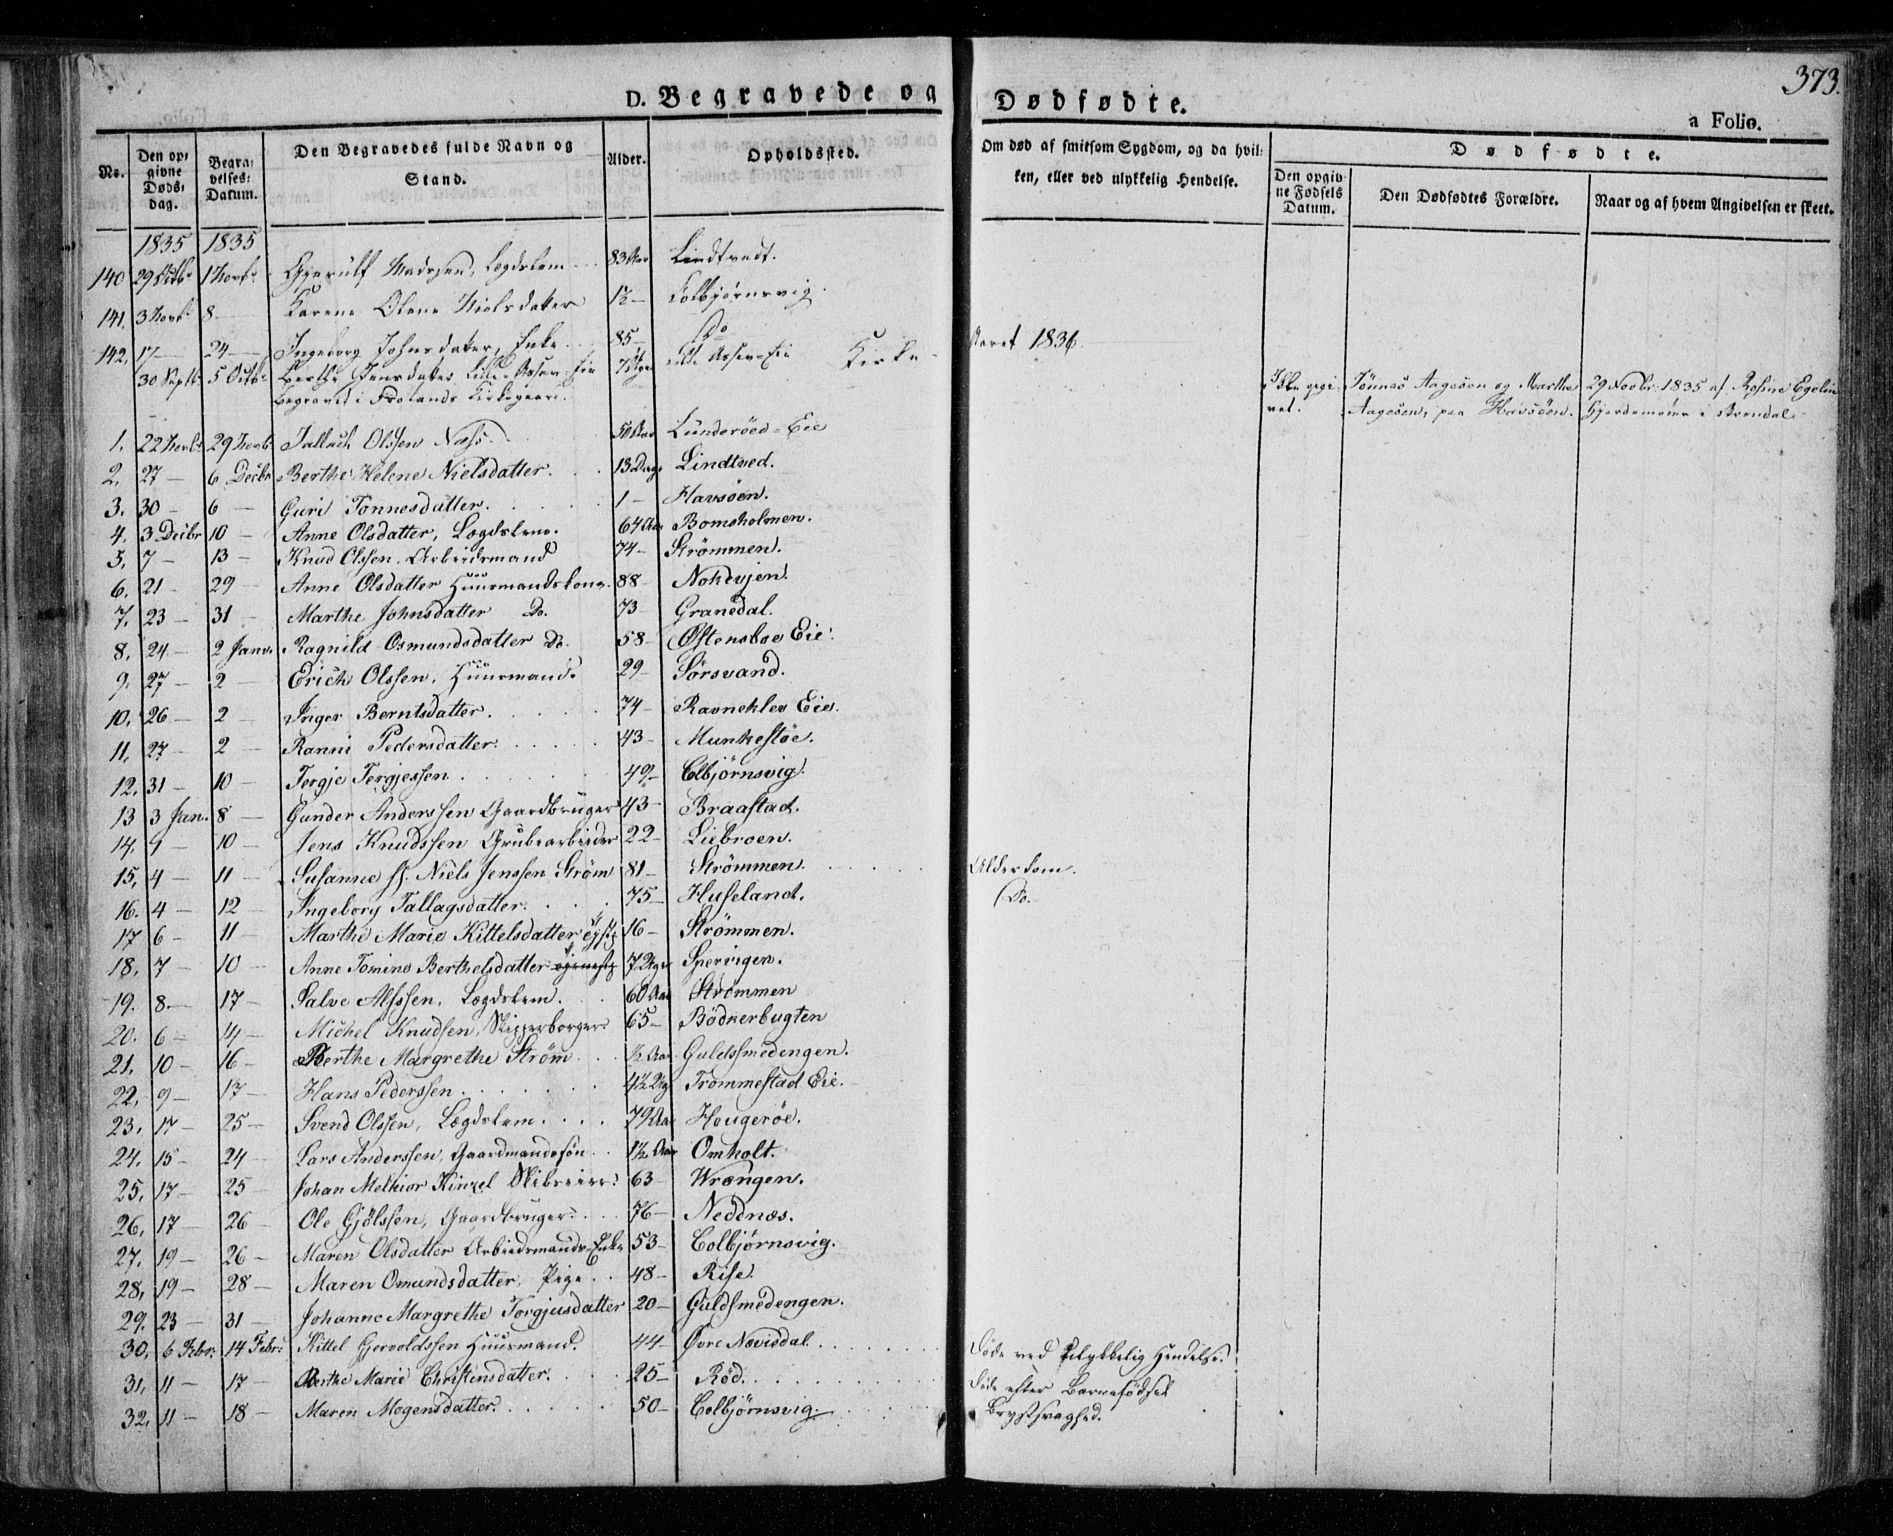 373.
D. Begravede og Dødfødte.
a Folio.
No.
Den opgivne Døds-dag.
Begravelses-Datum.
Den Begravedes fulde Navn og Stand.
Alder.
Opholdssted.
Om død af smitsom Sygdom, og da hvilken, eller ved ulykkelig Hendelse.
Dødfødte.
Den opgivne Fødsels Datum.
Den Dødfødtes Forældre.
Naar og af hvem Angivelsen er skeet.
1835 1835
140 29 Octb. 1 Novb. Gjerulf Madssen, Lægdslem 83 Aar Lindtvedt.
141. 3 Novb. 8 Karene Olene Nielsdatter 1½ – Colbjørnsvig.
142. 17 – 24 – Ingeborg Johnsdatter, Enke 85 – Do
30 Septb. 5 Octb. Berthe Jensdatter Lille Assen Eie 7 Uger Lille Assen-Eie
begravet i Frolands Kirkegaard.
Kirke-Aaret 1836.
Ikke opgivet. Tønnes Aagesen og Marthe Aagesen, paa Havsøen. 29 Novbr. 1835 af Rosine Egelin Gjordemoder i Arendal.
1. 22 Novb. 29 Novb. Tallach Olssen Næss. 50 Aar Lunderöed-Eie
2. 27 – 6 Decbr Berthe Helene Nielsdatter. 13 Dage Lindtved.
3. 30 – 6 – Guri Tönnesdatter. 1 – Havsöen.
4. 3 Decbr 10 – Anne Olsdatter, Lægdslem. 64 Aar Bomsholmen.
5. 7 – 13 – Knud Olssen. Arbeidsmand 74 – Strömmen.
6. 21 – 29 – Anne Olsdatter Huusmandskone. 88 – Nohevjen.
7. 23 – 31 – Marthe Johnsdatter Do. 73 – Granedal.
8. 24 – 2 Janv. Ragnild Osmundsdatter Do. 58 – Østensboe Eie.
9. 27 – 2 – Erich Olssen, Huusmand. 29 – Sörsvand.
10. 26 – 2 – Inger Berntsdatter. 74 – Ravnehlev Eie.
11. 27 – 2 – Ranni Pedersdatter. 43 – Munkestöe.
12. 31 – 10 – Tergje Tergjessen 49 – Colbjörnsvig.
13 3 Jan. 8 – Gunder Anderssen Gaardbruger 43 – Braastad.
14. 1 – 10 – Jens Knudssen Grubearbeider 22 – Liebroen.
15. 4 – 11 – Susanne sl. Niels Jenssen Ström 81 – Strömmen. Alderdom.
16. 4 – 12 – Ingeborg Tallagsdatter. 75 – Huseland. Do.
17 6 – 11 – Marthe Marie Kittelsdatter 16 – Strömmen.
18. 7 – 10 – Anne Tomine Berthelsdatter 7 Uger Spervigen.
19. 8. – 17 – Salve Alfssen, Lægdslem. 60 Aar Strömmen
20. 6 – 14 – Michel Knudsen, Skipperborger. 65 – Bödkerbugten
21. 10 – 16 – Berthe Margrethe Ström ½ Aar Guldsmedengen.
22. 9 – 17 – Hans Pederssen. 4½ Uge Trommestad Eie.
23. 17 – 25 – Svend Olssen, Lægdslem. 79 Aar Hougeröe.
24. 15 – 24 – Lars Anderssen, Gaardmandssön 1½ Aar Omholt.
25. 17 – 25 – Johan Melhior Kinzel Skibreier. 63 – Wrængen.
26. 17 – 26 – Ole Gjölssen, Gaardbruger. 76 – Nednæs.
27. 19 – 26 – Maren Olsdatter Arbeidsmands-Enke 53 – Colbjörnsvig.
28. 19 – 28 – Maren Omundsdatter, Pige 48 – Rise.
29. 23 – 31 – Johanne Margrethe Torgjusdatter 20 – Guldsmedengen.
30. 6 Febr. 14 Febr. Kittel Gjervoldssen Huusmand. 44 – Øvre Nævisdal. Døde ved ulykkelig Hendelse.
31. 11 – 17 – Berthe Marie Christensdatter. 25 – Röd. Døde efter Barnefödsel
32. 11 – 18 – Maren Mogensdatter. 50 – Colbjörnsvig. Brystsvaghed.